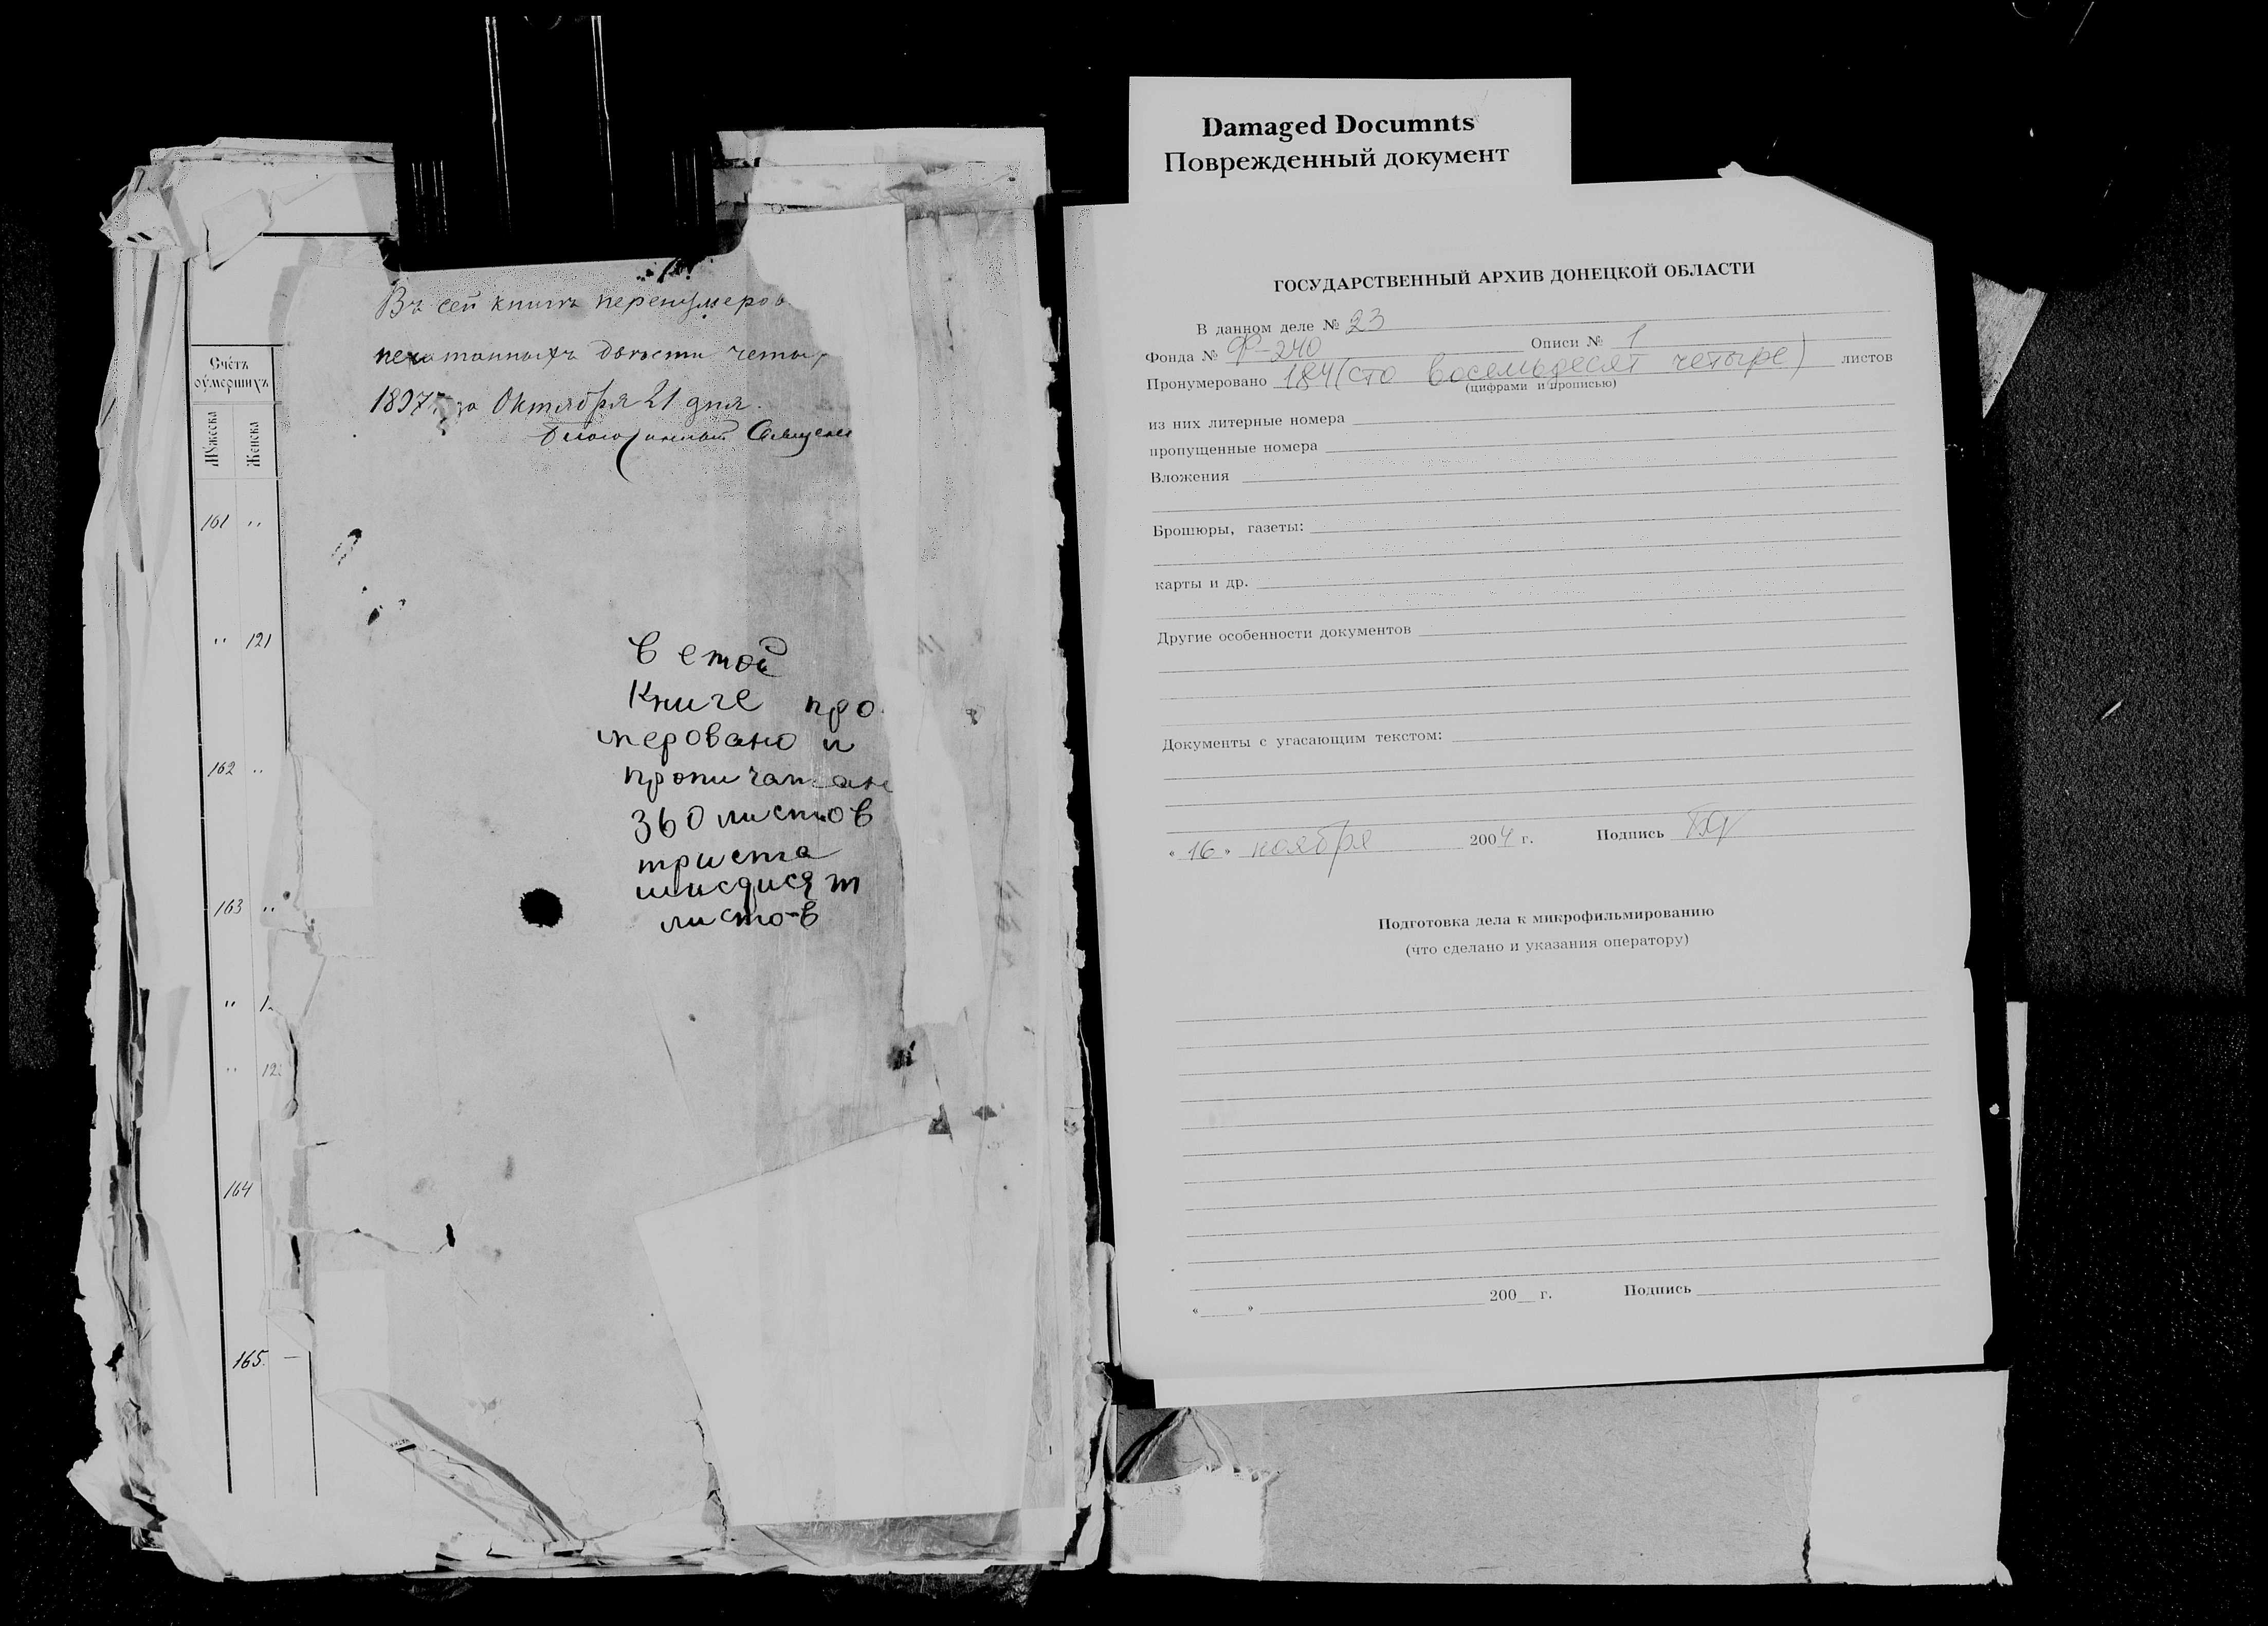 Счетъ
оумершихъ
Мужеска
Женска
161 "
" 121
162 "
163 "
"
"
164
165. —
Въ сей книгѣ перенумеров
печатанныхъ двѣсти четы
1897 го Октября 21 дня.
Благочинный Священ
в етой
Книге про
меровано и
пропичатан
360 листов
триста
шисдисят
листов
Damaged Documnts
Поврежденный документ
ГОСУДАРСТВЕННЫЙ АРХИВ ДОНЕЦКОЙ ОБЛАСТИ
В данном деле № 23
Фонда № Ф-240 Описи № 1
Пронумеровано 184 (сто восемьдесят четыре) листов
(цифрами и прописью)
из них литерные номера
пропущенные номера
Вложения
Брошюры, газеты:
карты и др.
Другие особенности документов
Документы с угасающим текстом:
« 16 » ноября 2004 г. Подпись
Подготовка дела к микрофильмированию
(что сделано и указания оператору)
« » 200 г. Подпись